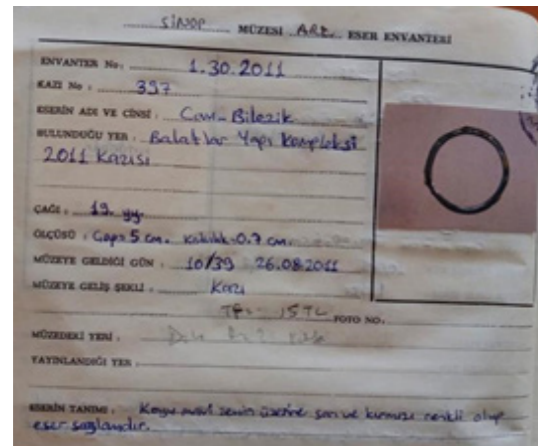 SİNOP MÜZESİ ARK. ESER ENVANTERİ
ENVANTER No: 1.30.2011
KAZI No : 397
ESERİN ADI VE CİNSİ : Cam-Bilezik
BULUNDUĞU YER : Balatlar Yapı Kompleksi
2011 Kazısı
ÇAĞI : 19. yy.
ÖLÇÜSÜ : Çap: 5 cm. -0.7 cm.
MÜZEYE GELDİĞİ GÜN : 10/39 26.08.2011
MÜZEYE GELİŞ ŞEKLİ : Kazı
15TL FOTO NO.
MÜZEDEKİ YERİ :
YAYINLANDIĞI YER
ESERİN TANIMI : Koyu mavi zemin üzerine sarı ve kırmızı renkli olup
eser sağlamdır.